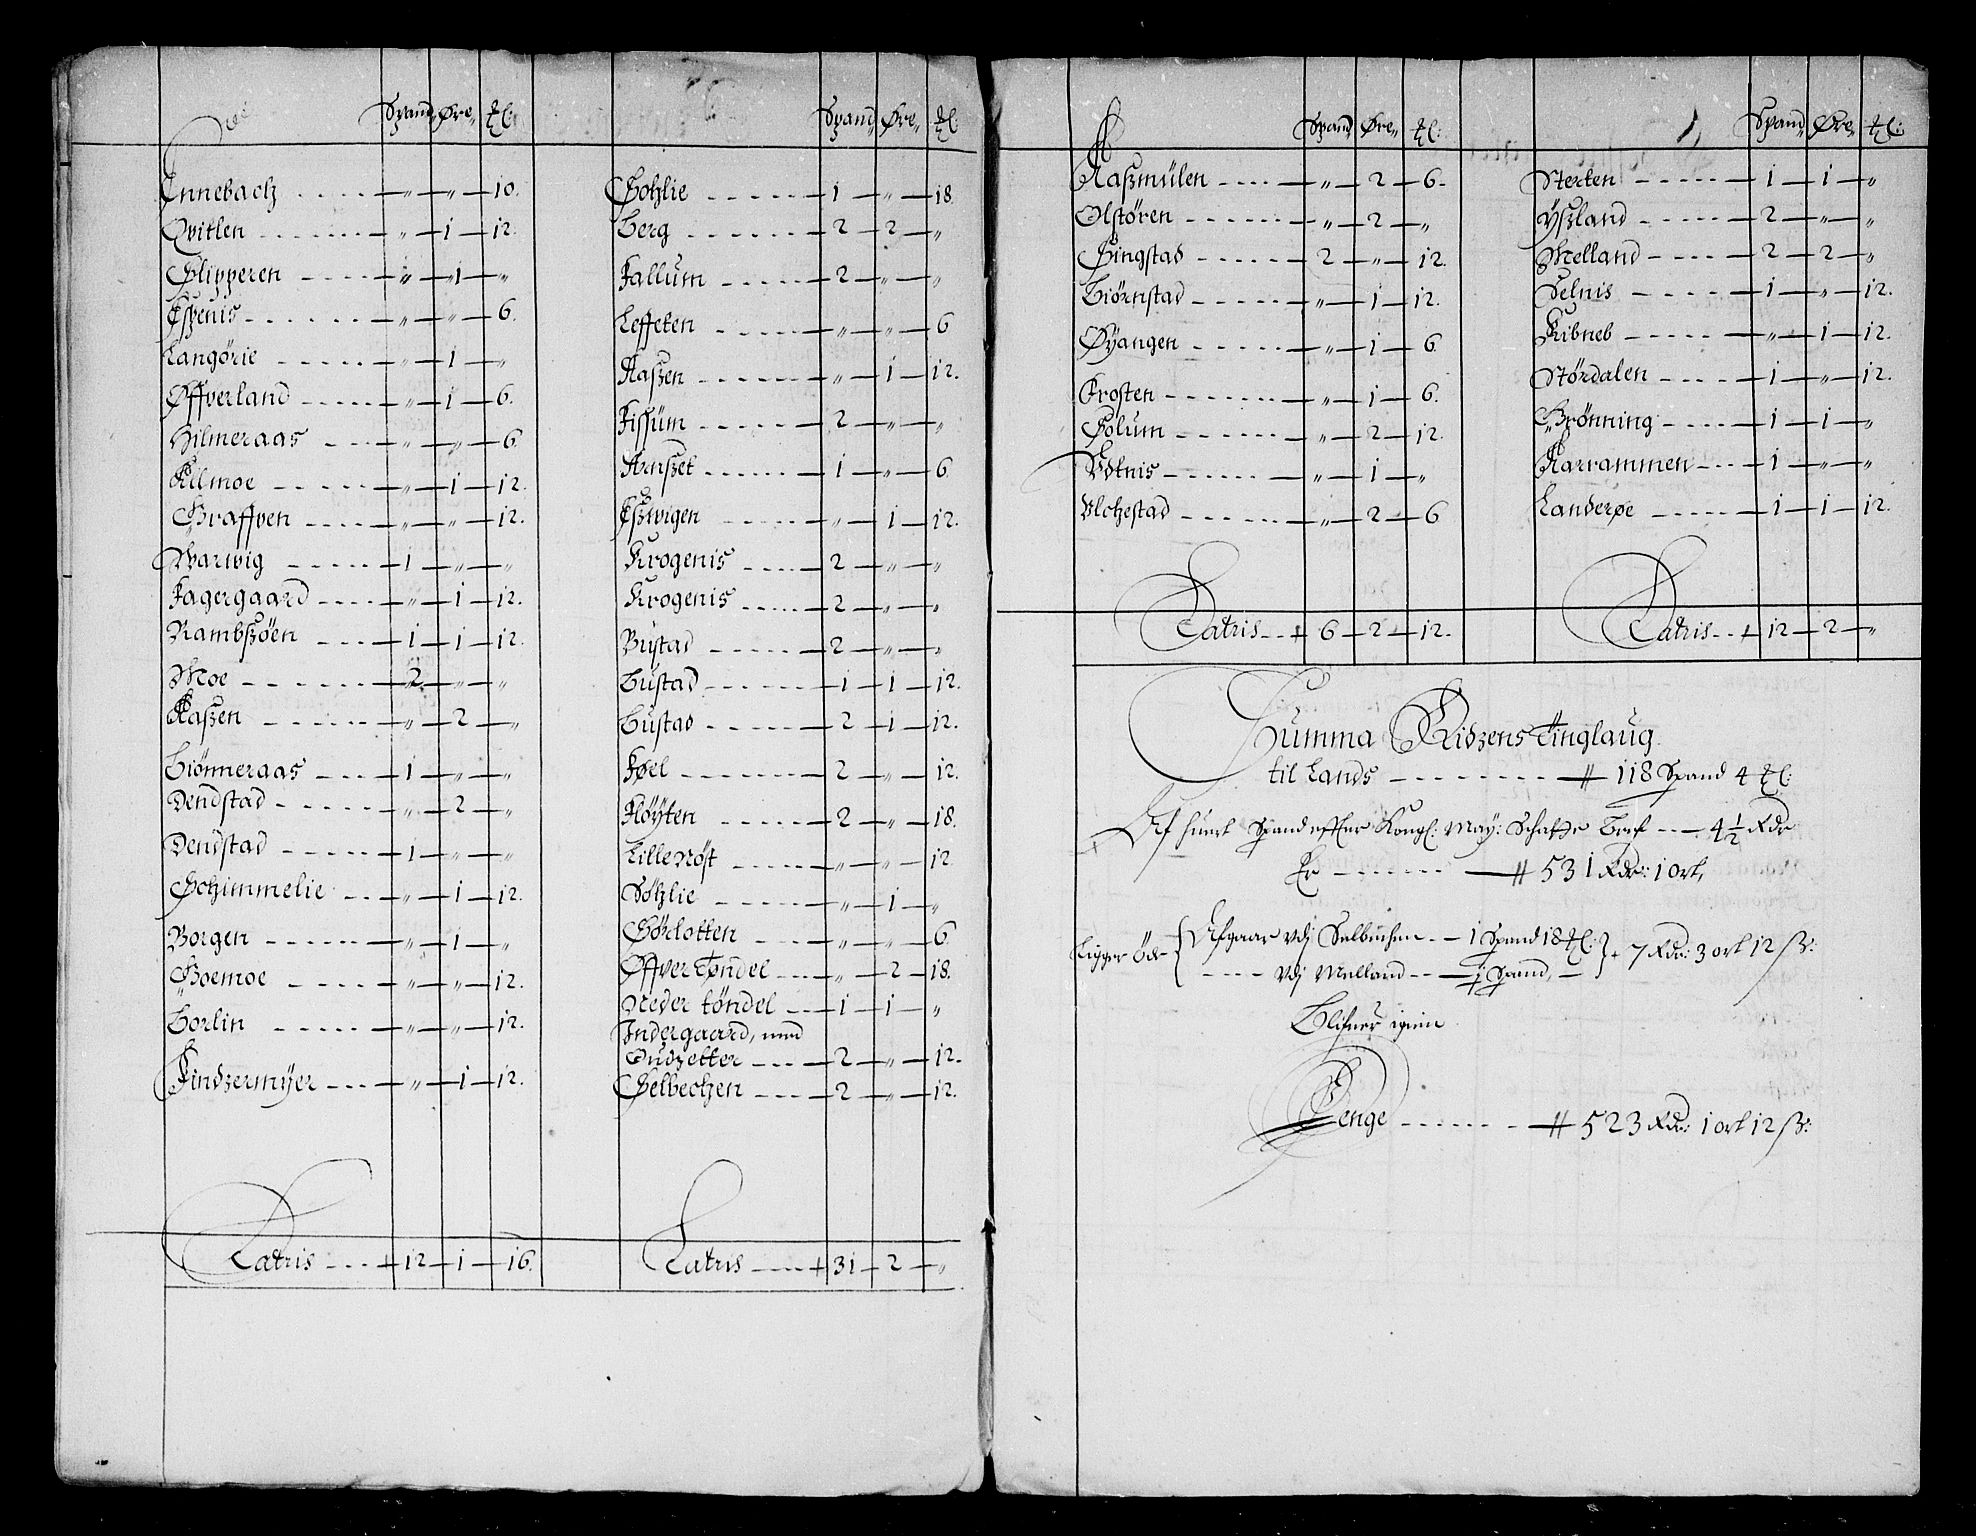 Spand Øre ℔:
Ennebach - - - - „ „ 10.
Qvitlen - - - - „ 1 12.
Klipperen - - - - „ 1 „
Eszenis - - - - „ „ 6.
Langörie - - - - „ 1 „
Øffverland - - - - „ 1 6.
Hilmeraas - - - - „ „ 6.
Kilmoe - - - - „ 1 12.
Graffven - - - - „ „ 12.
Warwig - - - - 1 „ „
Fagergaard - - - - „ 1 12.
Rambszöen - - - - 1 1 12.
Moe - - - - 2 „ „
Aaszen - - - - „ 2 „
Biönneraas - - - - 1 „ „
Dendstad - - - - „ 2 „
Dendstad - - - - 1 „ „
Schimmelie - - - - „ 1 12.
Borgen - - - - „ 1 „
Boemoe - - - - „ „ 12.
Borlin - - - - „ „ 12.
Findzermyer - - - - „ 1 12.
Latris - - - - 12 1 16.
Spand Øre ℔:
Hohlie - - - - 1 „ 18.
Berg - - - - 2 2 „
Fallum - - - - 2 „ „
Leffeten - - - - „ „ 6
Aaszen - - - - „ 1 12.
Fissüm - - - - 2 „ „
Arnszet - - - - 1 „ 6
Eszwigen - - - - „ 1 12.
Krogenis - - - - 2 „ „
Krogenis - - - - 2 „ „
Bustad - - - - 2 „ „
Bustad - - - - 1 1 12.
Bustad - - - - 2 1 12.
Føel - - - - 2 „ 12.
Flöyten - - - - 2 „ 18.
Lille Nöst - - - - „ „ 12
Söhlie - - - - „ 1 „
Hörlotten - - - - „ „ 6
Øffver Tøndel - - - - „ 2 18.
Neder töndel - - - - 1 1 „
Indergaard, med
Øudzetter - - - - 2 „ 12.
Selbechen - - - - 2 „ 12.
Latris - - - - 31 2 „
Spand Øre ℔:
Aaszmülen - - - - „ 2 6.
Olstören - - - - „ 2 „
Hingstad - - - - 2 „ 12.
Biörnstad - - - - „ 1 12.
Øÿangen - - - - „ 1 6
Frosten - - - - „ 1 6.
Solum - - - - „ 2 12.
Udtnis - - - - „ 1 „
Ulchestad - - - - „ 2 6
Latris - - - - 6 2 12.
Spand Øre ℔:
Sterten - - - - 1 1 „
Ÿszland - - - - 2 „ „
Melland - - - - 2 2 „
Selnis - - - - 1 „ 12.
Kibneb - - - - „ 1 12.
Stördalen - - - - 1 „ 12.
Grönning - - - - 1 1 „
Karrammen - - - 1 „ „
Landerøe - - - - 1 1 12.
Latris - - 12 2 „
Summa Ridzens Tinglaug
til Lands - - - - - - - 118 Spand 4 ℔:
Af huert Spand effter Kongl: May: Schatte Bref - - 4½ Rdr
Er - - - - - - 531 Rdr: 1 ort,
Ligger Öde { Afgaar vdj Selbuchen - - 1 Spand 18 ℔: } 7 Rdr: 3 ort 12 ß:
- - - - vdj Melland - - ½ Spand, -
Blifuer igien
Penge - - - - - - 523 Rdr: 1 ort 12 ß: